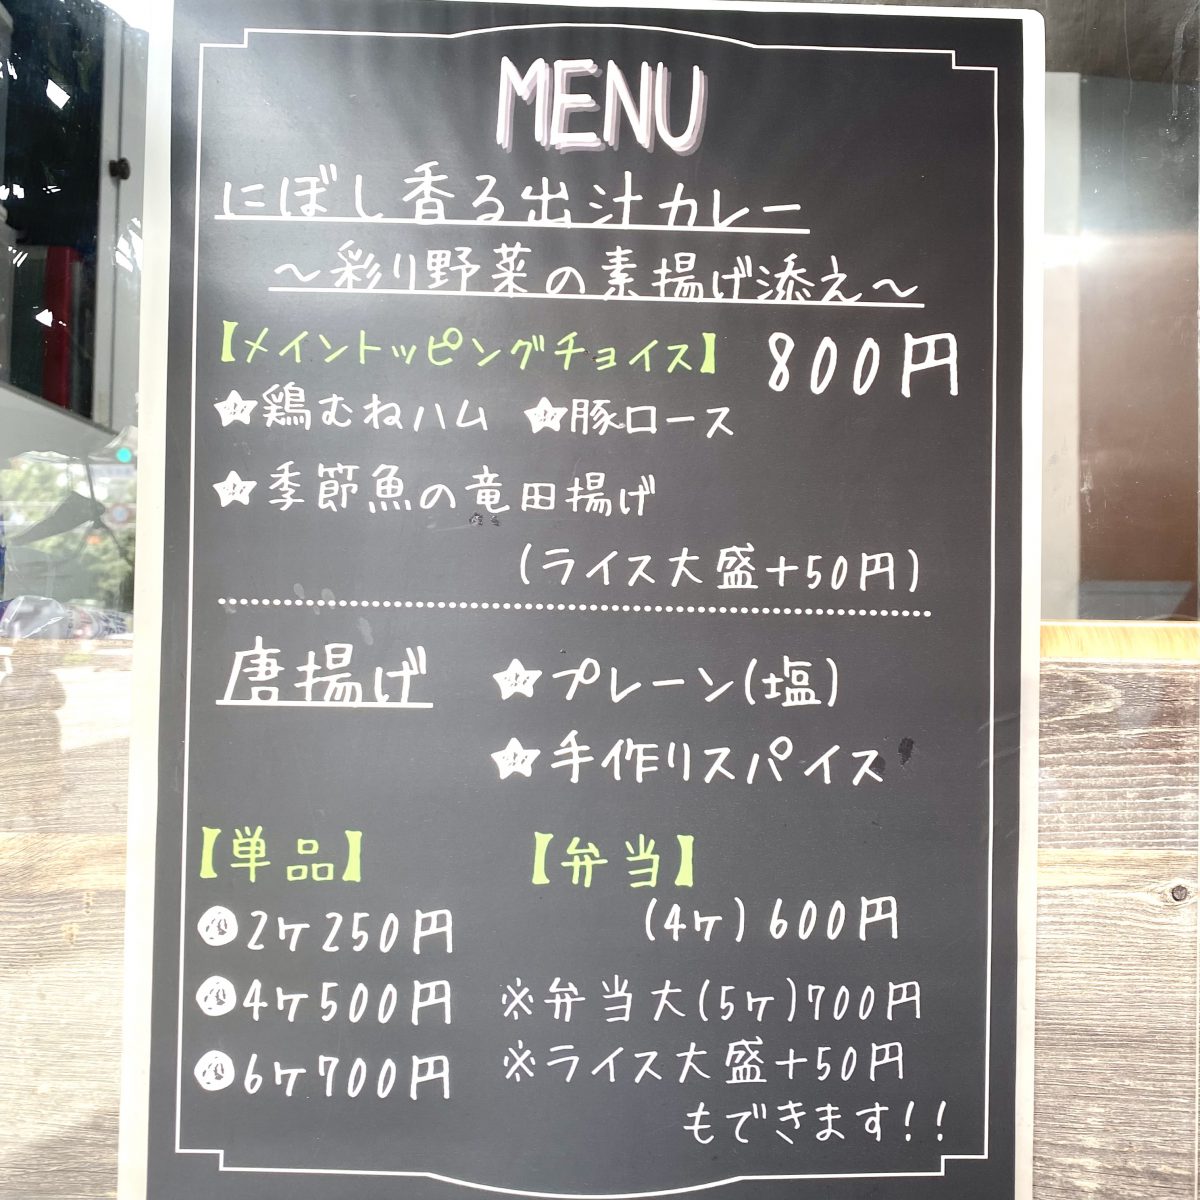 MENU
にぼし香る出汁カレー
～彩り野菜の素揚げ添え～
【メイントッピングチョイス】 800円
★鶏むねハム ★豚ロース
★季節魚の竜田揚げ
(ライス大盛+50円)
唐揚げ ★プレーン(塩)
★手作りスパイス
【単品】 【弁当】
2ケ250円 (4ケ)600円
4ケ500円 ※弁当大(5ケ)700円
6ケ700円 ※ライス大盛+50円
もできます!!